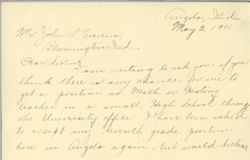 Angola, Ind.
May 2, 1911
Mr. John
Bloomington Ind.
Dear Sir: I am writing to ask you if you
think there is any chance for me to
get a position as Math or History
teacher in a small High School through
the University office. I have been asked
to accept my seventh grade position
here in Angola again, but would